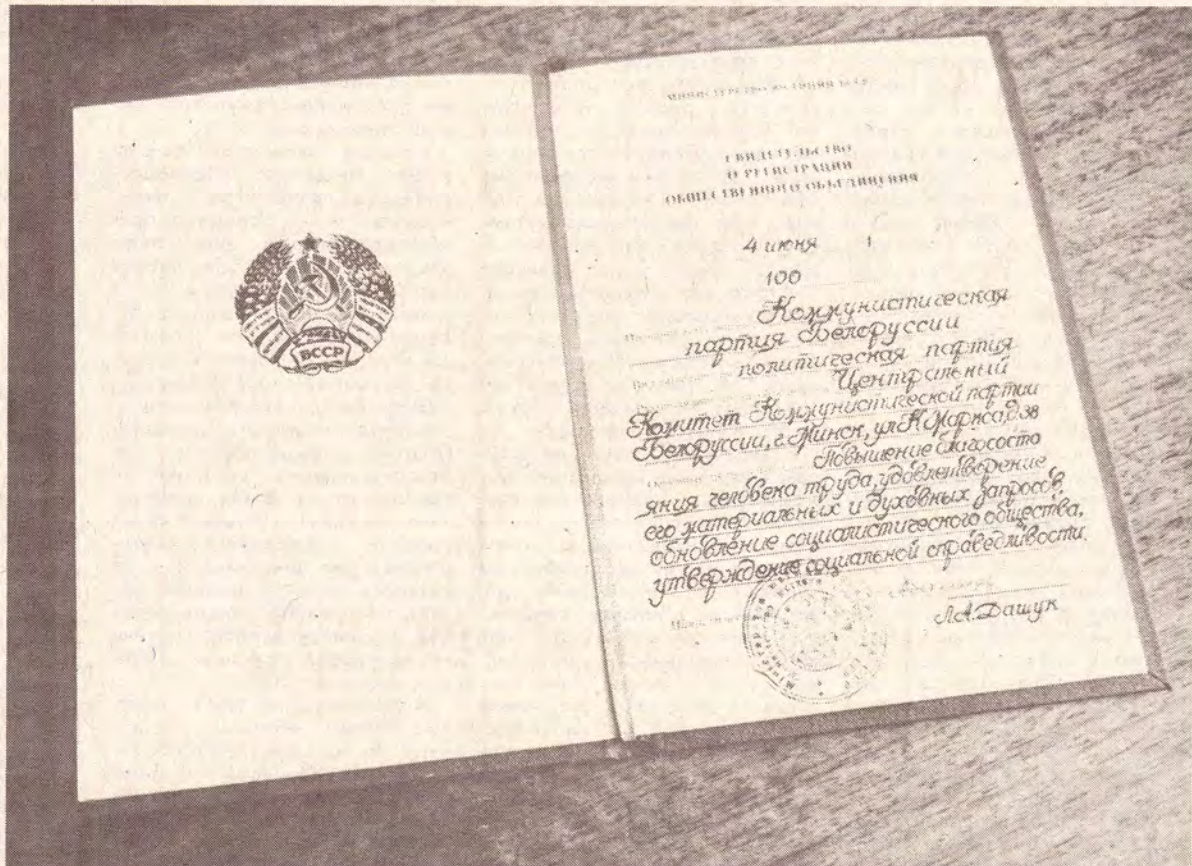 БССР
МИНИСТЕРСТВО ЮСТИЦИИ БССР
СВИДЕТЕЛЬСТВО
О РЕГИСТРАЦИИ
ОБЩЕСТВЕННОГО ОБЪЕДИНЕНИЯ
4 июня 1
100
Коммунистическая
партия Белоруссии
политическая партия
Центральный
Комитет Коммунистической партии
Белоруссии, г. Минск, ул. К. Маркса, д. 38
Повышение благососто
яния человека труда, удовлетворение
его материальных и духовных запросов,
обновление социалистического общества,
утверждение социальной справедливости.
Л.А. Дашук